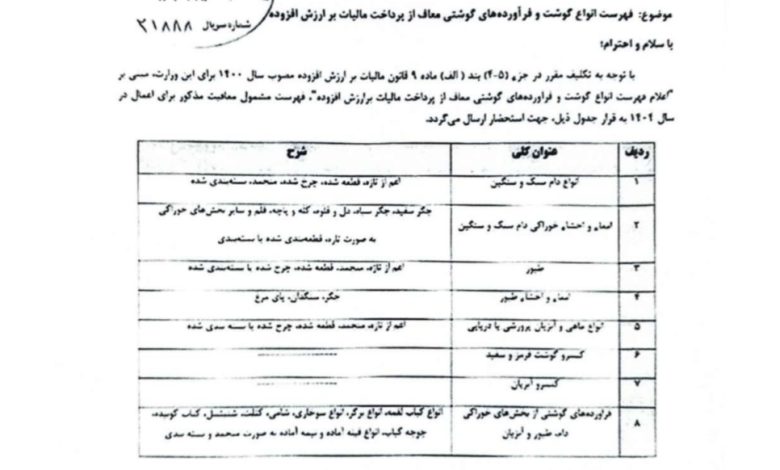 موضوع: فهرست انواع گوشت و فرآورده‌های گوشتی معاف از پرداخت مالیات بر ارزش افزوده
شماره سریال ۲۱۸۸۸
با سلام و احترام؛
با توجه به تکلیف مقرر در جزء (۵-۴) بند (الف) ماده ۹ قانون مالیات بر ارزش افزوده مصوب سال ۱۴۰۰ برای این وزارت، مبنی بر
"اعلام فهرست انواع گوشت و فراورده‌های گوشتی معاف از پرداخت مالیات برارزش افزوده"، فهرست مشمول معافیت مذکور برای اعمال در
سال ۱۴۰۴ به قرار جدول ذیل، جهت استحضار ارسال می‌گردد.
ردیف عنوان کلی شرح
۱ انواع دام سبک و سنگین اعم از تازه، قطعه شده، چرخ شده، منجمد، بسته‌بندی شده
۲ امعاء و احشاء خوراکی دام سبک و سنگین جگر سفید، جگر سیاه، دل و قلوه، کله و پاچه، قلم و سایر بخش‌های خوراکی
به صورت تازه، قطعه‌بندی شده یا بسته‌بندی
۳ طیور اعم از تازه، منجمد، قطعه شده، چرخ شده یا بسته‌بندی شده
۴ امعاء و احشاء طیور جگر، سنگدان، پای مرغ
۵ انواع ماهی و آبزیان پرورشی یا دریایی اعم از تازه، منجمد، قطعه شده، چرخ شده یا بسته بندی شده
۶ کنسرو گوشت قرمز و سفید ----------------
۷ کنسرو آبزیان ----------------
۸ فراورده‌های گوشتی از بخش‌های خوراکی انواع کباب لقمه، انواع برگر، انواع سوخاری، شامی، کتلت، شنیتسل، کباب کوبیده،
دام، طیور و آبزیان جوجه کباب، انواع فیله آماده و نیمه آماده به صورت منجمد و بسته بندی